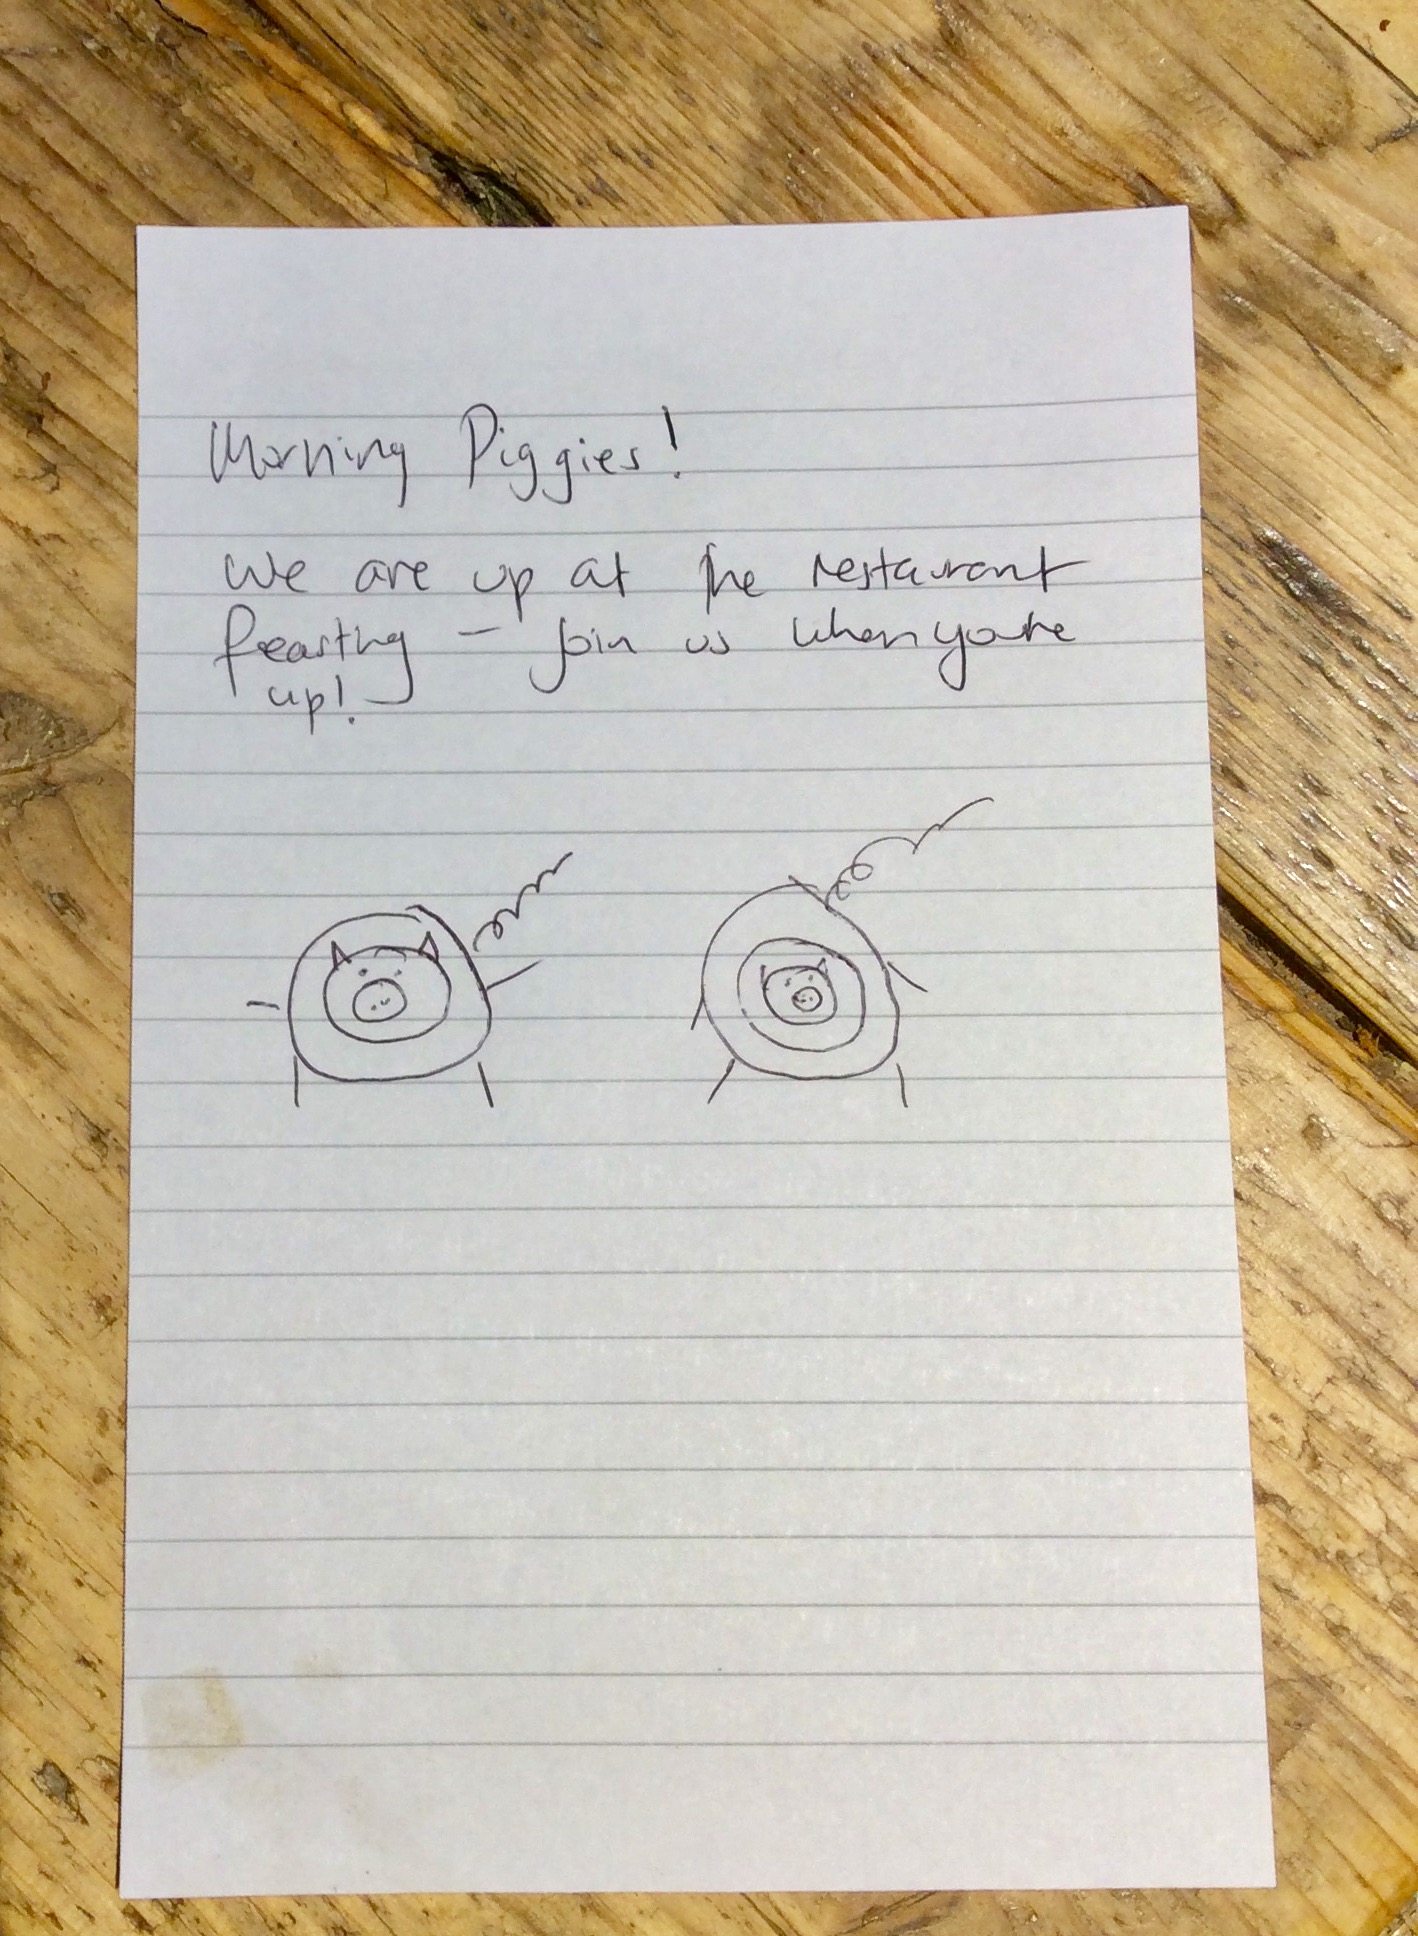 Morning Piggies!
We are up at the restaurant
feasting – join us when you're
up!